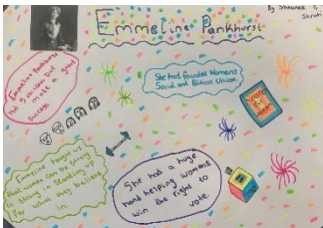 By Shaunak &
Sarah
Emmeline Pankhurst
Emmeline Pankhurst
has 5 children but
made a great
success.
She had founded Womens
Social and Political Union.
Votes
for
women
Emmeline taught us
that women can be strong
is strong in standing up
for what they believe
in.
She had a huge
hand helping womans
win the right to
vote.